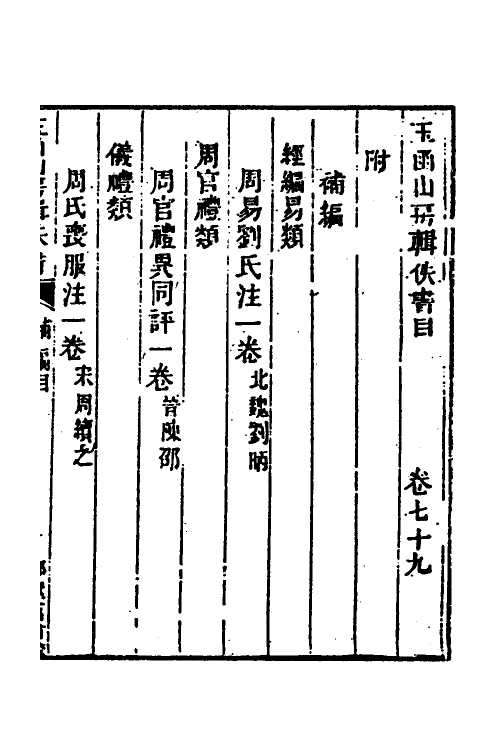 玉函山房輯佚書目 卷七十九
附
補編
經編易類
周易劉氏注一卷 北魏劉昞
周官禮類
周官禮異同評一卷 晉陳邵
儀禮類
周氏喪服注一卷 宋周續之